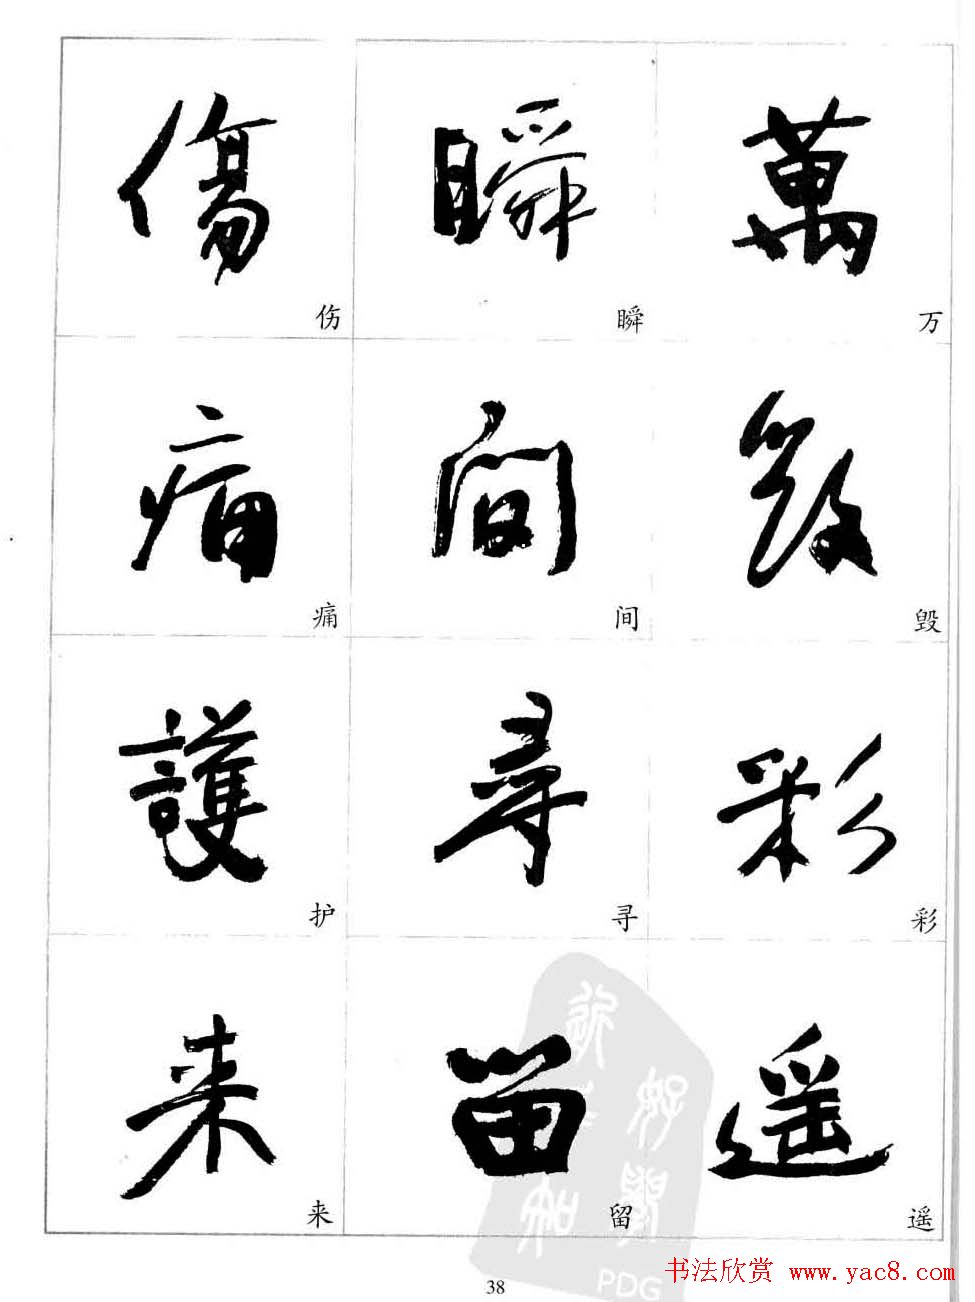 萬
万
毀
毁
彩
彩
遥
遥
瞬
瞬
間
间
尋
寻
留
留
傷
伤
痛
痛
護
护
来
来
38
PDG
书法欣赏 www.yac8.com